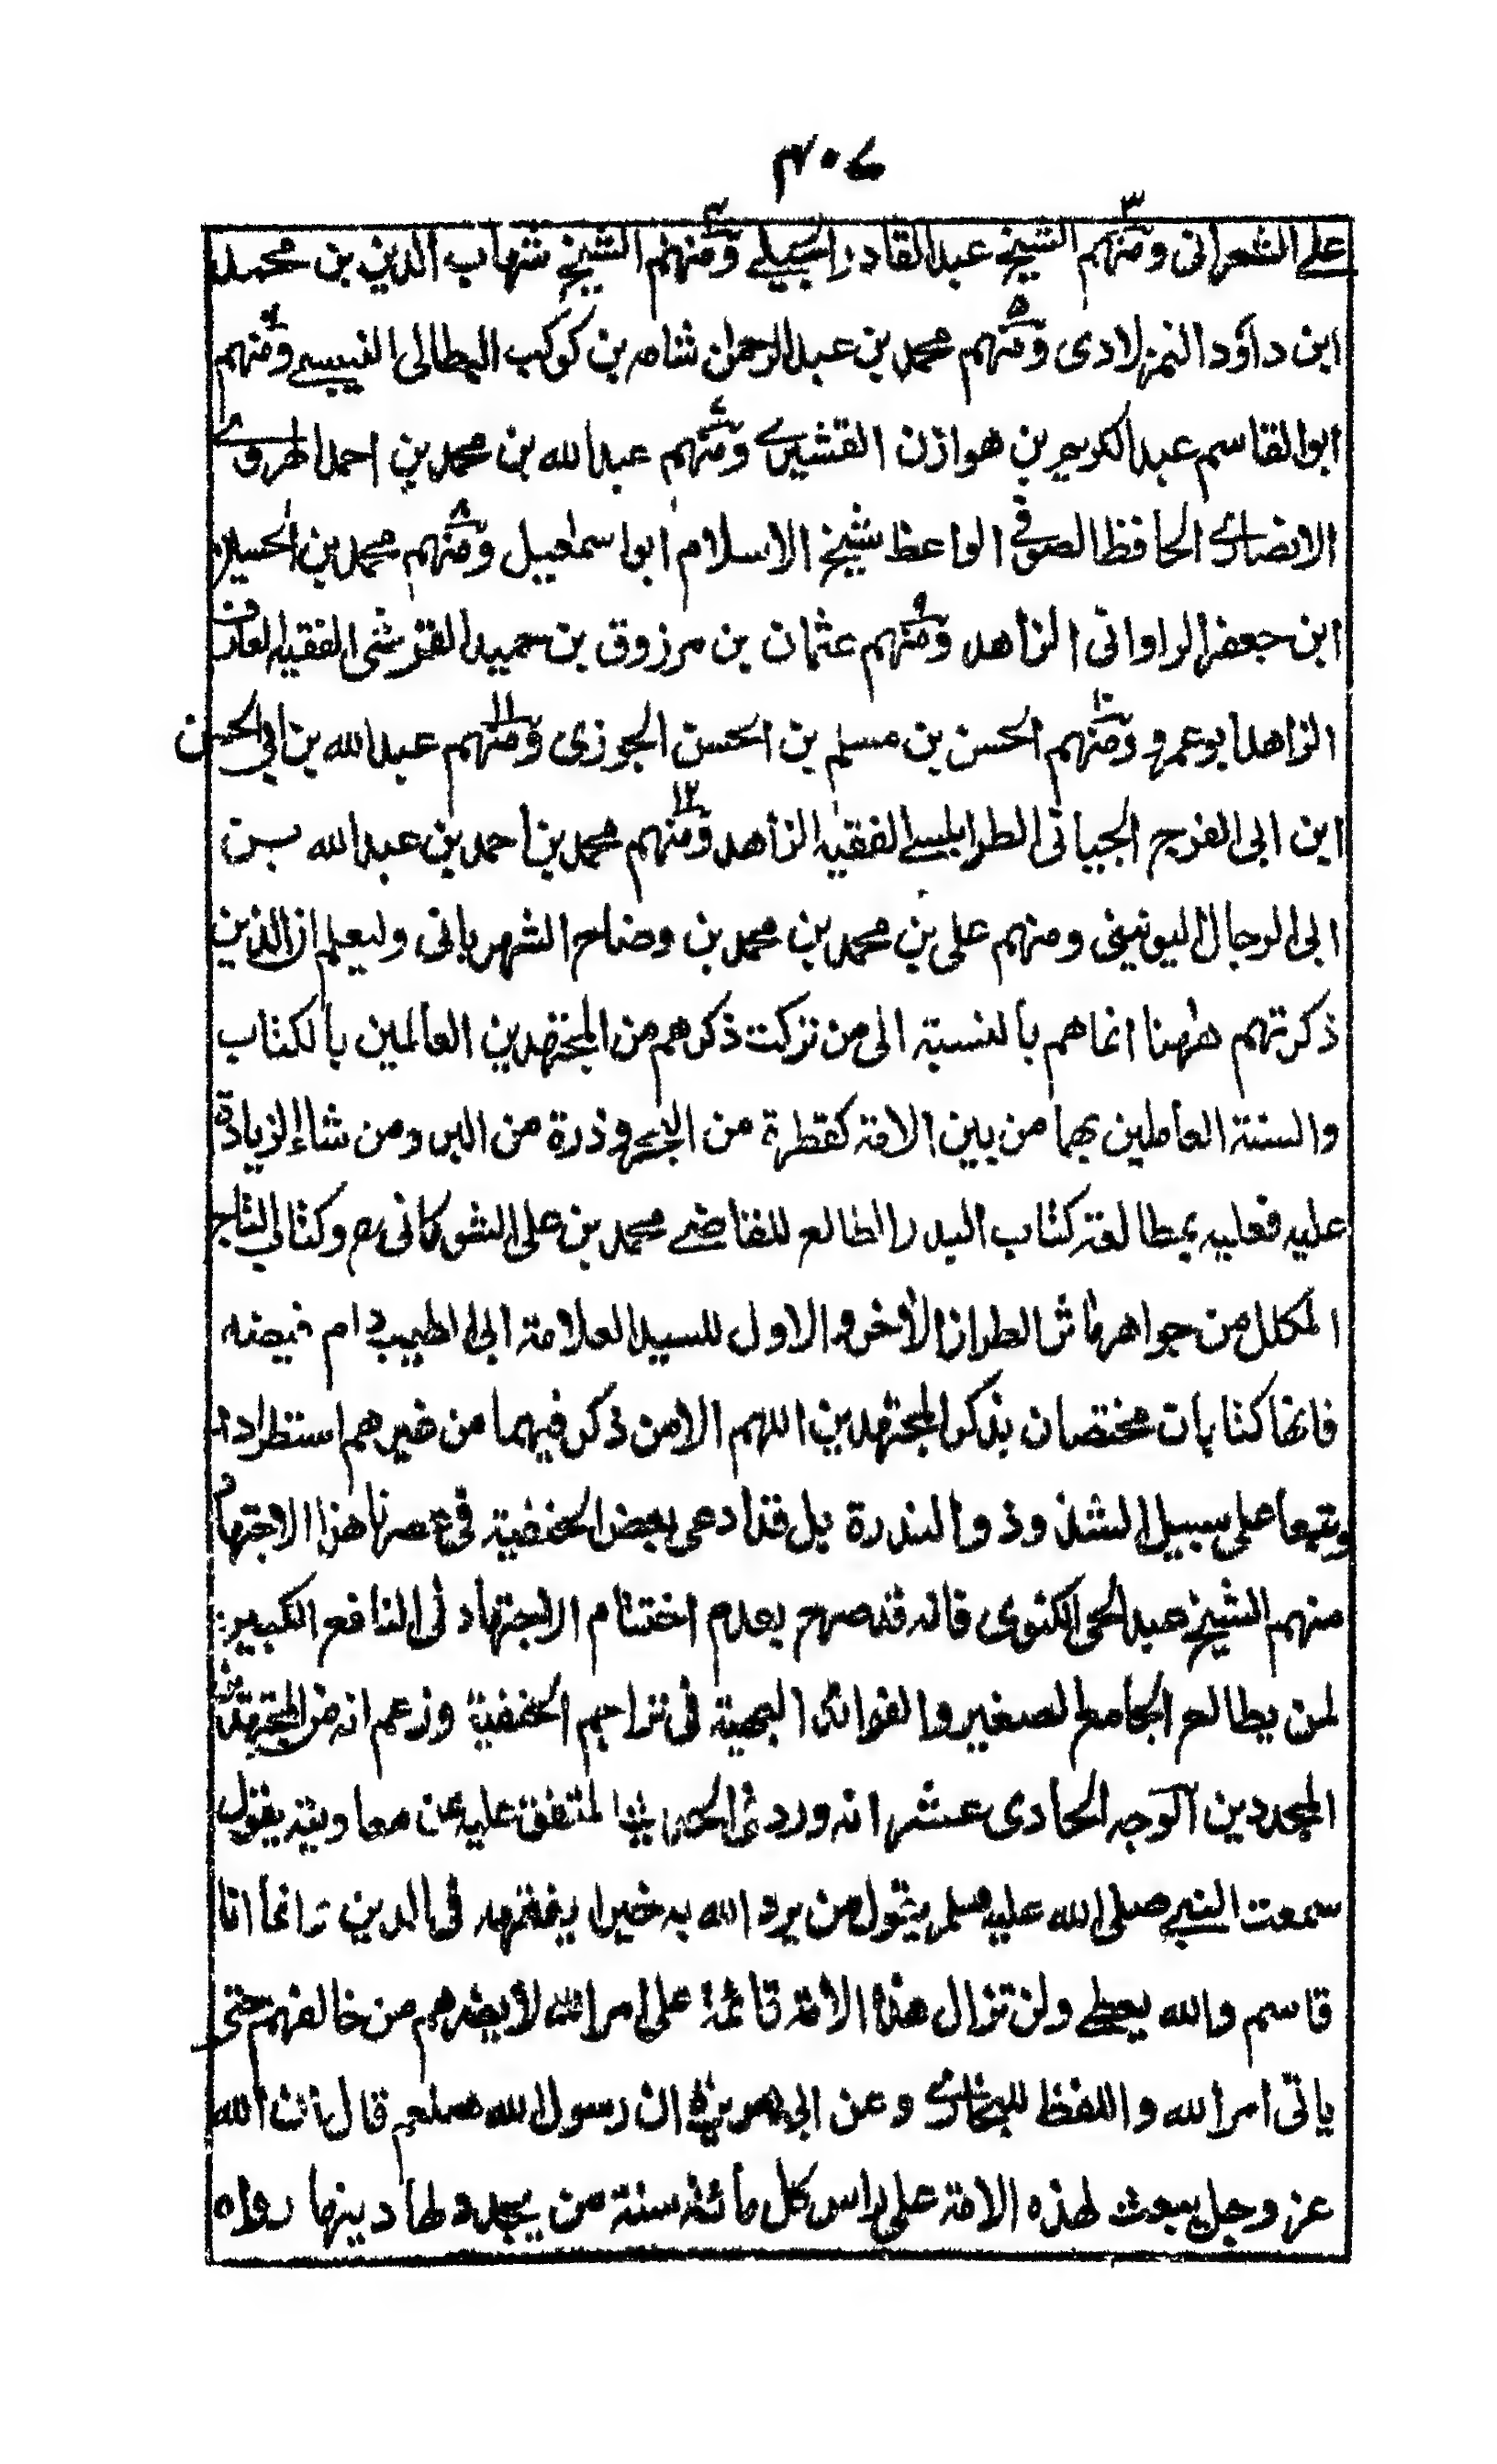 ٤٠٧
علي الشعراني ومنهم الشيخ عبد القادر الجيلي ومنهم الشيخ شهاب الدين بن محمد
ابن داؤد المنزلادى ومنهم محمد بن عبد الرحمن شاه بن كوكب الطالى ومنهم
ابو القاسم عبد الكريم بن هوازن القشيري ومنهم عبد الله بن محمد بن احمد الهروي
الانصاري الحافظ الصوفي الواعظ شيخ الاسلام ابو اسمعيل ومنهم محمد بن الحسين
ابن جعفر الراوانى الزاهد ومنهم عثمان بن مرزوق بن حميد القرشى الفقيه العارف
الزاهد ابو عمرو ومنهم الحسن بن مسلم بن الحسن الجوزى ومنهم عبد الله بن ابي الحسن
ابن ابى الفرج الجبائى الطرابلسي الفقيه الزاهد ومنهم محمد بن احمد بن عبد الله بن
ابى الرجال اليونينى ومنهم على بن محمد بن محمد بن وضاح الشهربانى وليعلم ان الذين
ذكرتهم ههنا انما هم بالنسبة الى من تركت ذكرهم من المجتهدين العالمين بالكتاب
والسنة العاملين بهما من بين الامة كقطرة من البحر وذرة من البر ومن شاء الزيادة
عليه فعليه بمطالعة كتاب البدر الطالع للقاضي محمد بن على الشوكانى رح وكتاب التاج
المكلل من جواهر مآثر الطراز الآخر والاول للسيد العلامة ابى الطيب دام فيضه
فانها كتابان مختصان بذكر المجتهدين اللهم الا من ذكر فيهما من غيرهم استطرادا
وتبعا على سبيل الشذوذ والندرة بل قد ادعى بعض الحنفية في عصرنا هذا الاجتهاد
منهم الشيخ عبد الحى الكنوى فانه قد صرح بعدم اختتام الاجتهاد فى النافع الكبير
لمن يطالع الجامع الصغير والفوائد البهية فى تراجم الحنفية وزعم انه من المجتهدين
المجددين آلوجه الحادى عشر انه ورد فى الحديث المتفق عليه عن معاوية يقول
سمعت النبي صلى الله عليه وسلم يقول من يرد الله به خيرا يفقهه فى الدين وانما انا
قاسم والله يعطي ولن تزال هذه الامة قائمة على امر الله لا يضرهم من خالفهم حتى
ياتى امر الله واللفظ للبخاري وعن ابى هريرة ان رسول الله صلعم قال ان الله
عز وجل يبعث لهذه الامة على راس كل مائة سنة من يجدد لها دينها رواه